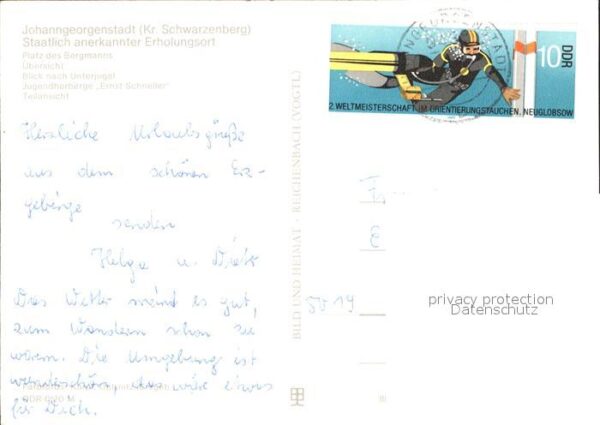 Johanngeorgenstadt (Kr. Schwarzenberg)
Staatlich anerkannter Erholungsort
Platz des Bergmanns
Übersicht
Blick nach Unterjugel
Jugendherberge „Ernst Schneller“
Teilansicht
Herzliche Urlaubsgrüße
aus dem schönen Erz-
gebirge
senden
Helga u. Dieter
Das Wetter meint es gut,
zum Wandern schon zu
warm. Die Umgebung ist
wunderschön, das wäre etwas
für Dich.
DDR 0,20 M
BILD UND HEIMAT · REICHENBACH (VOGTL)
10 DDR
2. WELTMEISTERSCHAFT IM ORIENTIERUNGSTAUCHEN, NEUGLOBSOW
privacy protection
Datenschutz